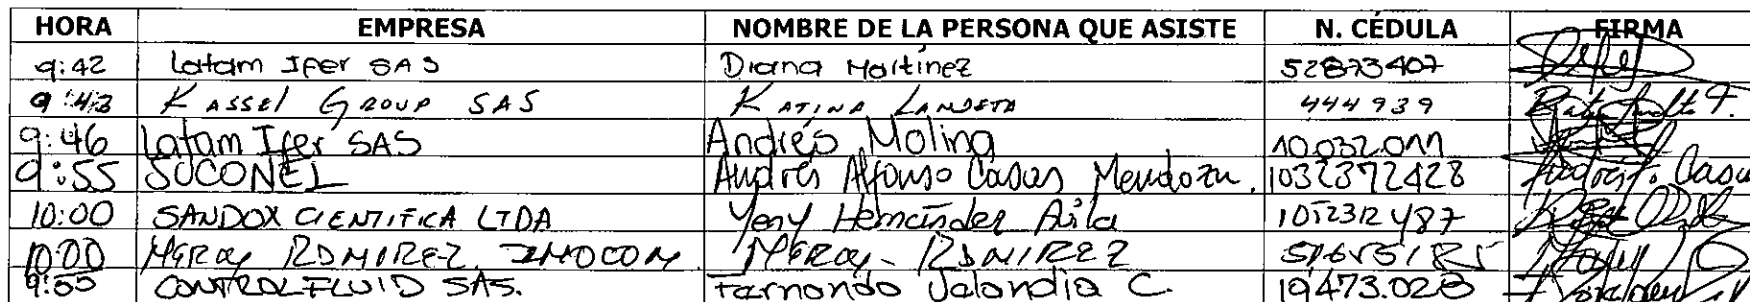 HORA EMPRESA NOMBRE DE LA PERSONA QUE ASISTE N. CÉDULA FIRMA
9:42 Latam Ifer SAS Diana Martinez 52873407
9:43 KASSEL GROUP SAS KATINA LANDETA 444939
9:46 Latam Ifer SAS Andrés Molina 10.032.011
9:55 SOCONEL Andrés Alfonso Casas Mendoza. 1032372428
10:00 SANDOX CIENTIFICA LTDA Yeny Hernández Avila
10:00 RAMIREZ IMOCOM RAMIREZ
9:55 CONTROLFLUID SAS. Fernando Jalandia C. 19473.028